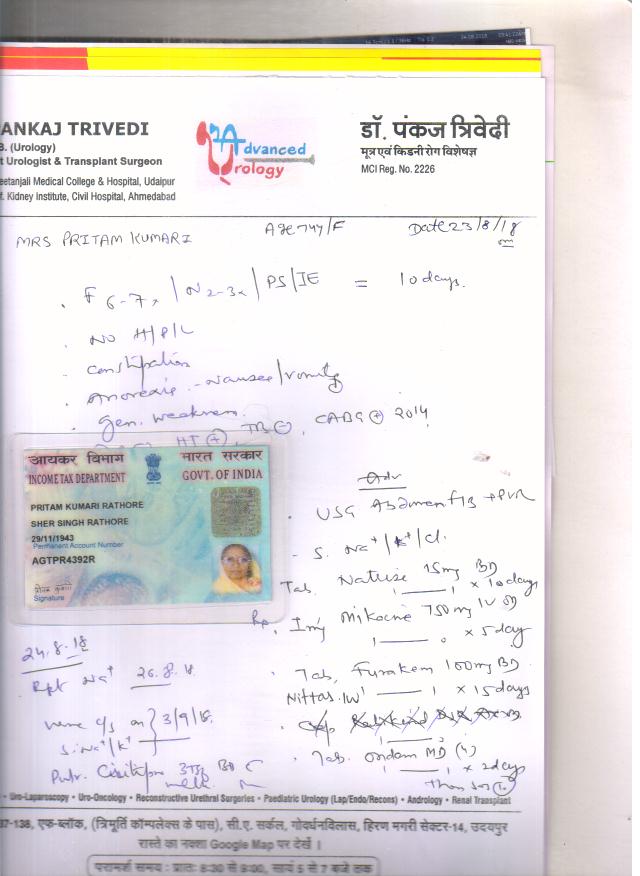 ANKAJ TRIVEDI
B. (Urology)
t Urologist & Transplant Surgeon
eetanjali Medical College & Hospital, Udaipur
f. Kidney Institute, Civil Hospital, Ahmedabad
Advanced
Urology
डॉ. पंकज त्रिवेदी
मूत्र एवं किडनी रोग विशेषज्ञ
MCI Reg. No. 2226
MRS PRITAM KUMARI
Age 74y/F
Date 23/8/18
F 6-7x / N2-3x / PS/IE = 10 days.
NO H/P/L
Constipation
Anorexia - nausea/vomiting
Gen. weakness.
HT (+) TB (-), CABG (+) 2014
आयकर विभाग भारत सरकार
INCOME TAX DEPARTMENT GOVT. OF INDIA
PRITAM KUMARI RATHORE
SHER SINGH RATHORE
29/11/1943
Permanent Account Number
AGTPR4392R
Signature
Adv
USG + PVR
S. Na+/K+/Cl.
Tab. Natrise 15mg BD
x 10 days
Inj Mikacine 750mg IV OD
x 5 day
Tab. Furakem 100mg BD
x 15 days
Tab. Ondam MD (4)
x 2 days
Than SOS
24.8.18
Rpt Na+ 26.8.18
3/9/18
S. Na+/K+
• Uro-Laparoscopy • Uro-Oncology • Reconstructive Urethral Surgeries • Paediatric Urology (Lap/Endo/Recons) • Andrology • Renal Transplant
37-138, एफ-ब्लॉक, (त्रिमूर्ति कॉम्पलेक्स के पास), सी.ए. सर्कल, गोवर्धनविलास, हिरण मगरी सेक्टर-14, उदयपुर
रास्ते का नक्शा Google Map पर देखें ।
परामर्श समय : प्रातः 8:30 से 9:00, सायं 5 से 7 बजे तक